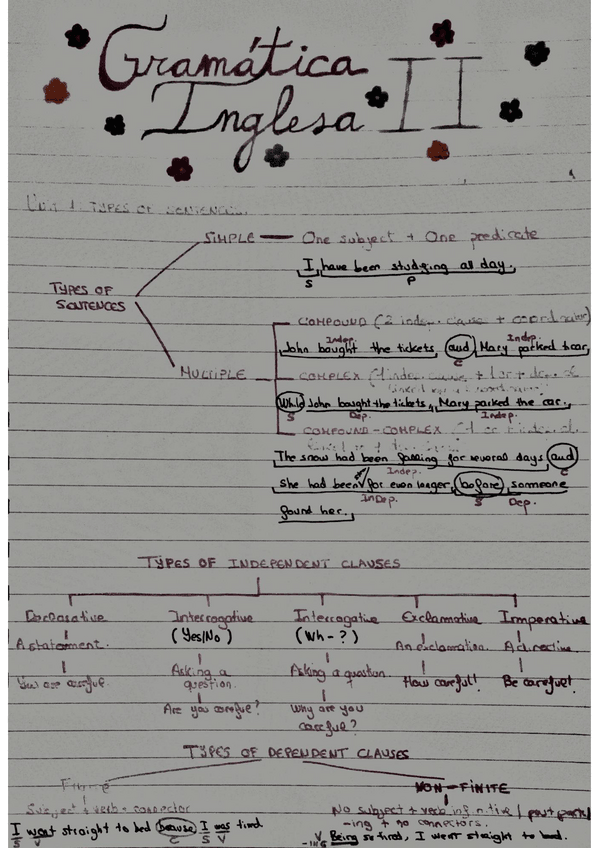 Gramática
Inglesa II
Unit 1: TYPES OF SENTENCES.
SIMPLE — One subject + One predicate
I have been studying all day.
S P
TYPES OF
SENTENCES
COMPOUND (2 indep. clause + coordinator)
Indep. Indep.
John bought the tickets, and Mary parked the car.
C
MULTIPLE
COMPLEX
While John bought the tickets, Mary parked the car.
S Dep. Indep.
COMPOUND-COMPLEX
The snow had been falling for several days and
Indep. C
she had been for even longer, before someone
InDep. S Dep.
found her.
TYPES OF INDEPENDENT CLAUSES
Declarative Interrogative Interrogative Exclamative Imperative
(Yes/No) (Wh-?)
A statement. An exclamation. A directive.
Asking a Asking a question
question.
You are careful. How careful! Be careful!
Are you careful? Why are you
careful?
TYPES OF DEPENDENT CLAUSES
Finite NON-FINITE
Subject + verb + connector No subject + verb infinitive / past part /
-ing + no connectors.
I went straight to bed because I was tired. Being so tired, I went straight to bed.
S V C S V V -ING